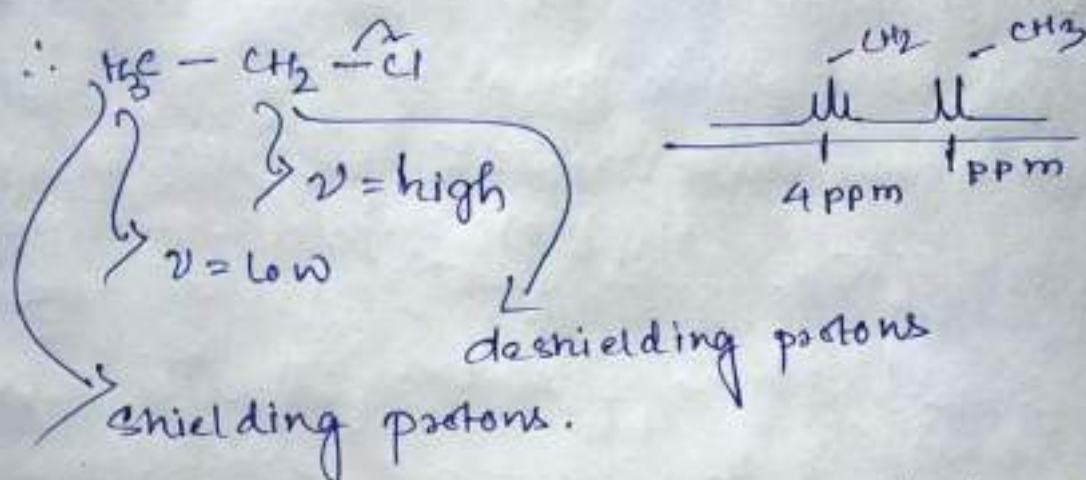 ∴ H₃C — CH₂ — Cl
CH₂
CH₃
4 ppm
1 ppm
ν = high
ν = low
deshielding protons
shielding protons.